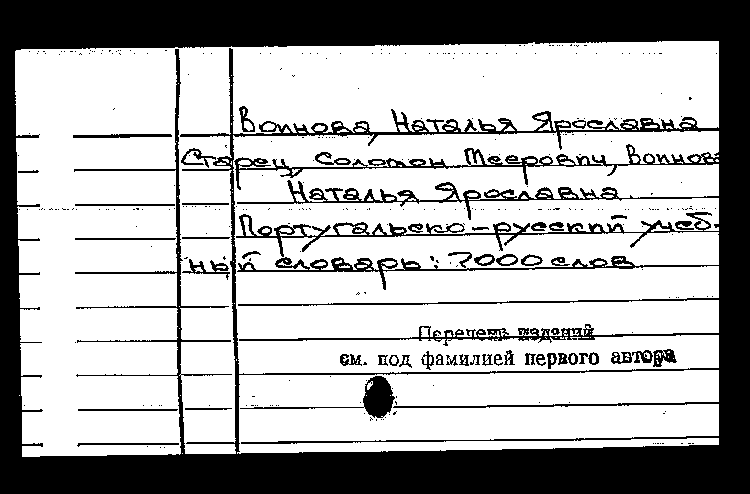 Воинова, Наталья Ярославна
Старец, Соломон Меерович, Воинова
Наталья Ярославна.
Португальско-русский учеб-
ный словарь: 7000 слов
Перечень изданий
см. под фамилией первого автора